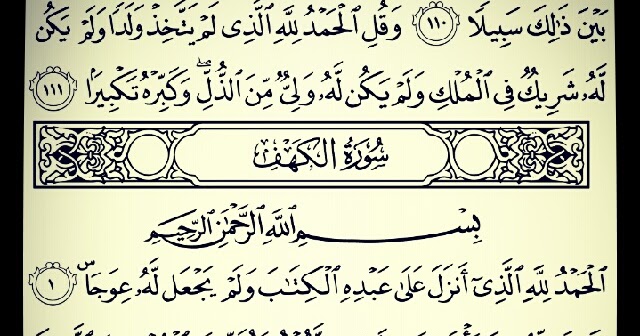 بَيْنَ ذَٰلِكَ سَبِيلًا ١١٠ وَقُلِ ٱلْحَمْدُ لِلَّهِ ٱلَّذِى لَمْ يَتَّخِذْ وَلَدًا وَلَمْ يَكُن
لَّهُۥ شَرِيكٌ فِى ٱلْمُلْكِ وَلَمْ يَكُن لَّهُۥ وَلِىٌّ مِّنَ ٱلذُّلِّ ۖ وَكَبِّرْهُ تَكْبِيرًۢا ١١١
سُورَةُ الكَهْفِ
بِسْمِ ٱللَّهِ ٱلرَّحْمَٰنِ ٱلرَّحِيمِ
ٱلْحَمْدُ لِلَّهِ ٱلَّذِىٓ أَنزَلَ عَلَىٰ عَبْدِهِ ٱلْكِتَٰبَ وَلَمْ يَجْعَل لَّهُۥ عِوَجَاۜ ١